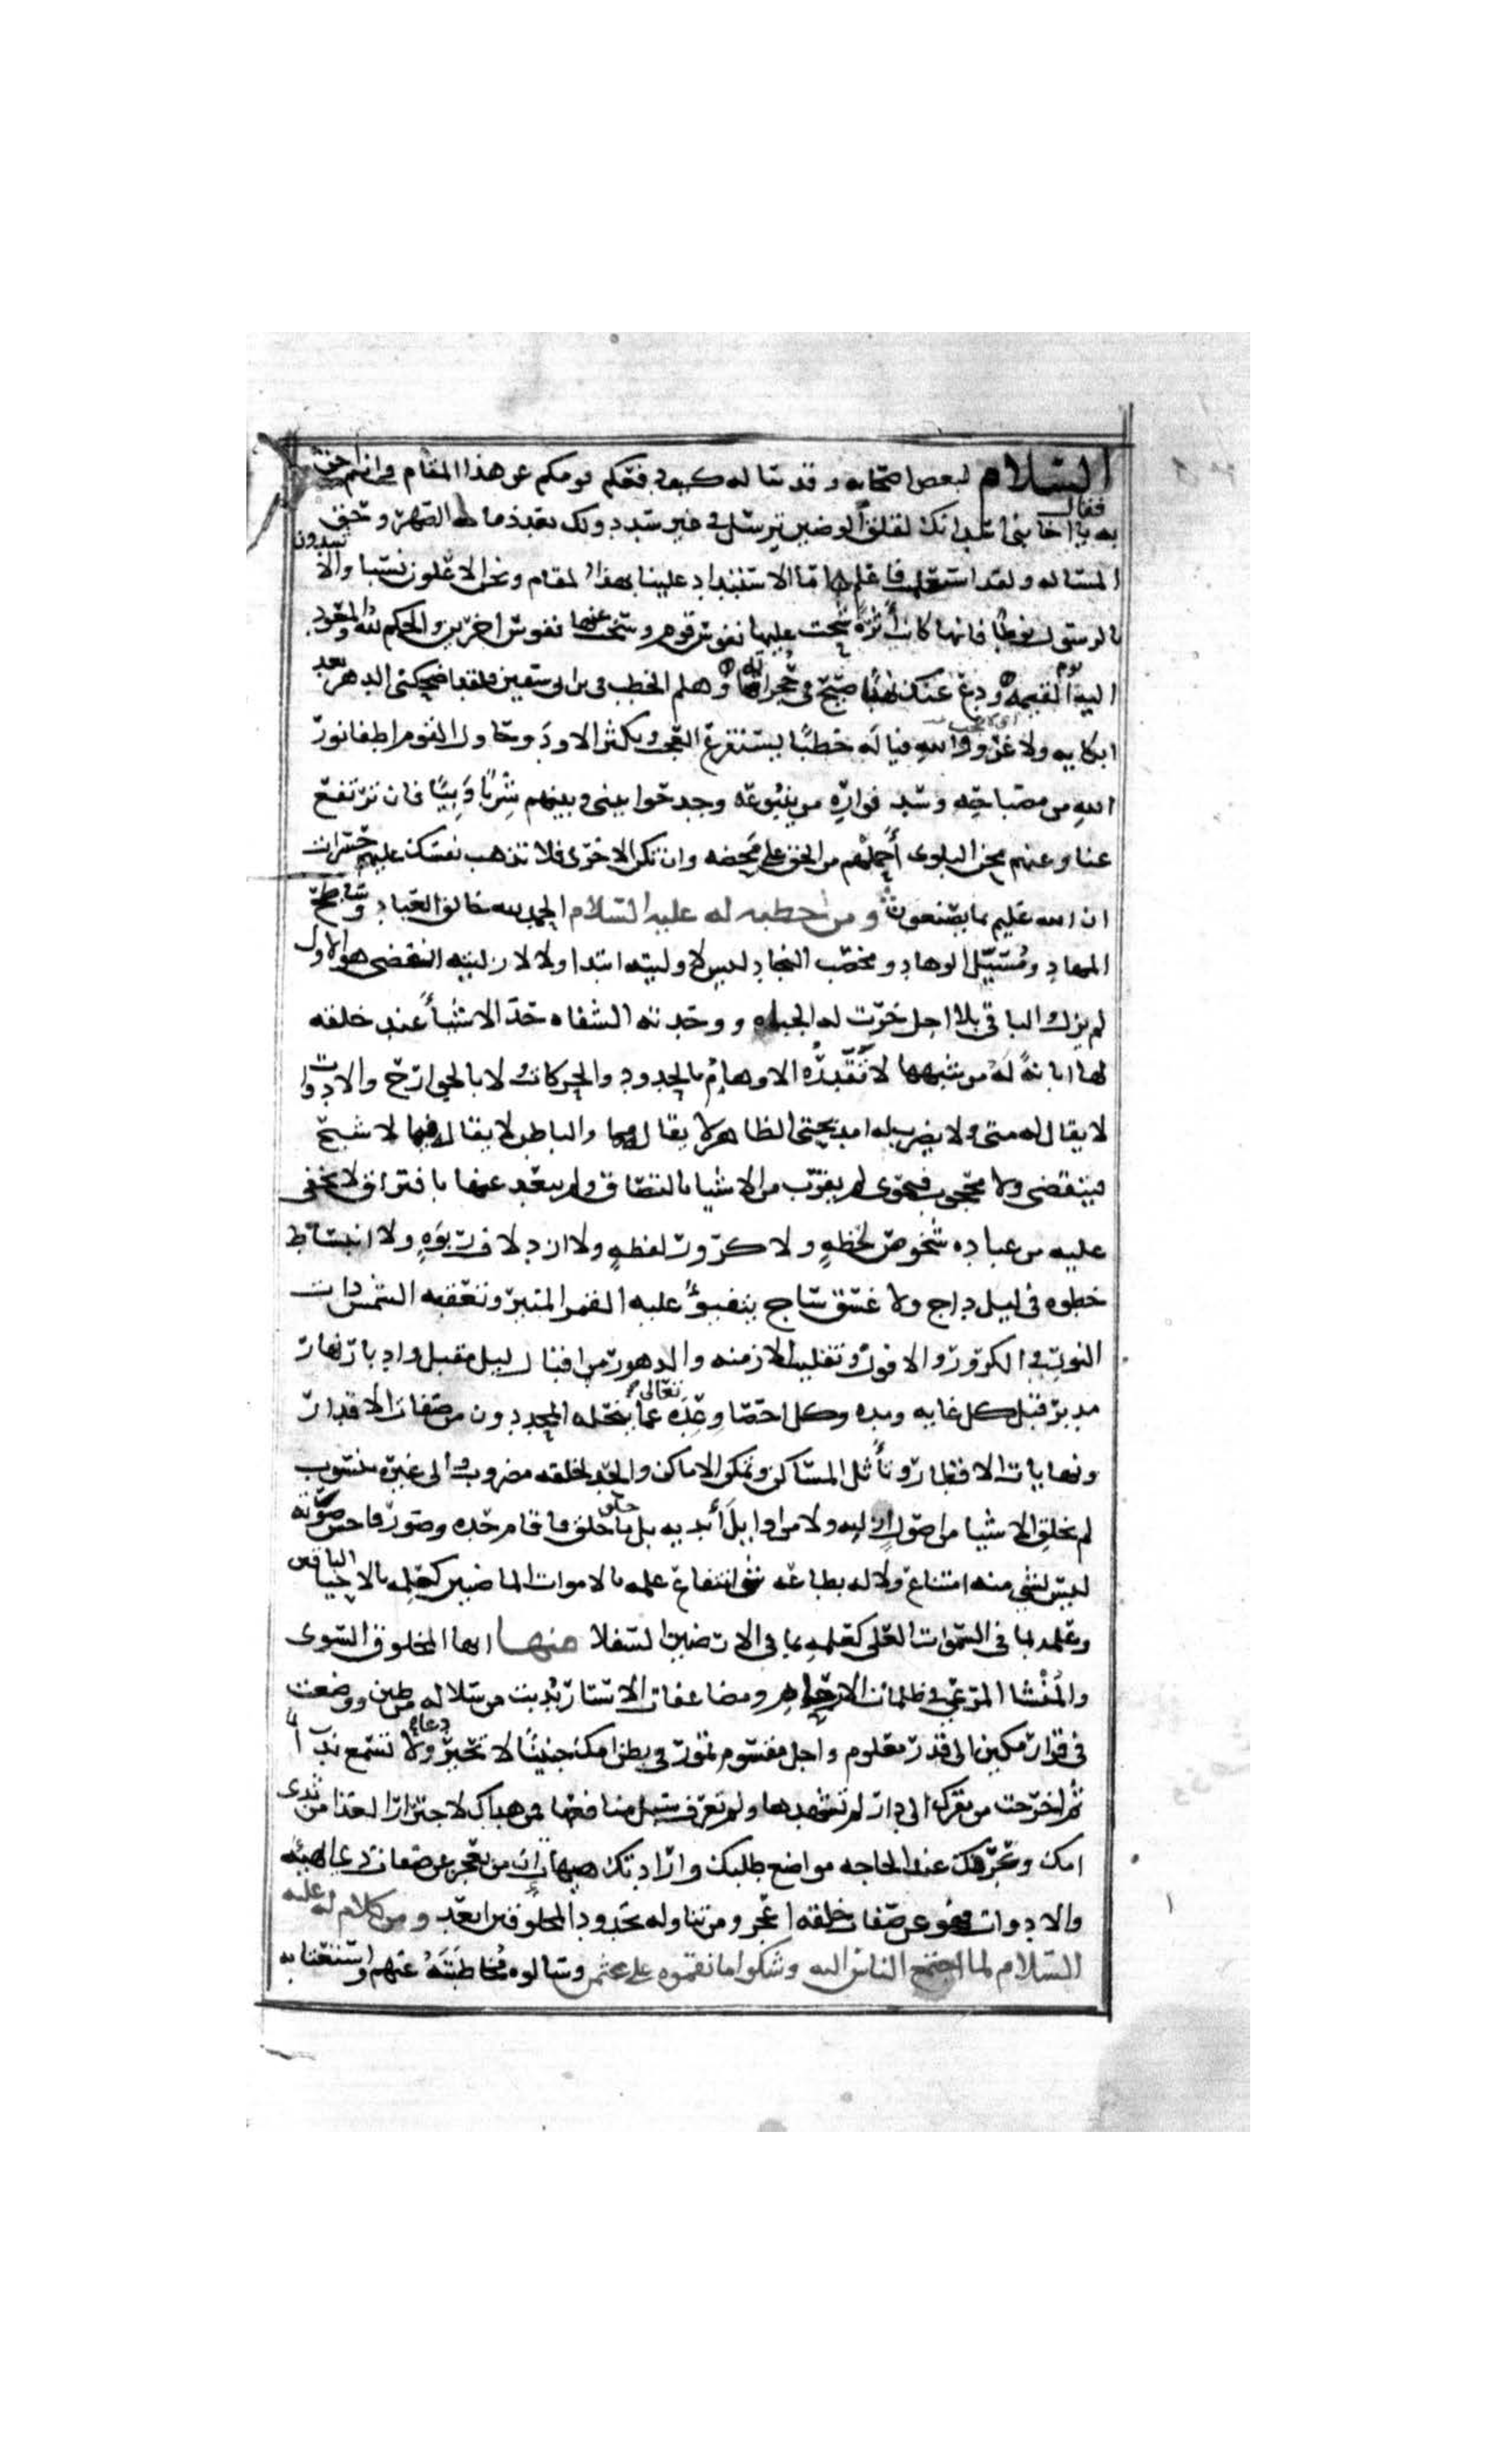 السلام لبعض اصحابه وقد ساله كيف دفعكم قومكم عن هذا المقام وانتم احق
به فقال يا اخا بني اسد انك لقلق الوضين ترسل في غير سدد ولك بعد ذمامة الصهر وحق
المساله وقد استعلمت فاعلم اما الاستبداد علينا بهذا المقام ونحن الاعلون نسبا والاشدون
بالرسول نوطا فانها كانت أثرة شحت عليها نفوس قوم وسخت عنها نفوس اخرين والحكم لله والمعود
اليه يوم القيمه ودع عنك نهبا صيح في حجراته وهلم الخطب في ابن ابي سفين فلقد اضحكني الدهر بعد
ابكايه ولا غرو والله فيا له خطبا يستفرغ العجب ويكثر الاود حاول القوم اطفا نور
الله من مصباحه وسد فواره من ينبوعه وجدحوا بيني وبينهم شربا وبيا فان ترتفع
عنا وعنهم محن البلوى أحملهم من الحق على محضه وان تكن الاخرى فلا تذهب نفسك عليهم حسرات
ان الله عليم بما يصنعون ومن خطبه له عليه السلام الحمد لله خالق العباد وساطح
المهاد ومسيل الوهاد ومخصب النجاد ليس لاوليته ابتدا ولا لازليته انقضى هو الاول
لم يزل والباقي بلا اجل خرت له الجباه ووحدته الشفاه حد الاشيأ عند خلقه
لها ابانةً له من شبهها لا تقدره الاوهام بالحدود والحركات ولا بالجوارح والادوات
لا يقال له متى ولا يضرب له امد بحتى الظاهر لا يقال مما والباطن لا يقال فيما لا شبح
فيتقضى ولا محجوب فيحوى لم يقرب من الاشيا بالتصاق ولم يبعد عنها بافتراق لا يخفى
عليه من عباده شخوص لحظةٍ ولا كرور لفظةٍ ولا ازدلاف ربوةٍ ولا انبساط
خطوه في ليل داج ولا غسق ساج يتفيؤ عليه القمر المنير وتعقبه الشمس ذات
النور في الكرور والافول وتقليب الازمنه والدهور من اقبال ليل مقبل وادبار نهار
مدبر قبل كل غايه ومده وكل احصا وعده تعالى عما ينحله المحددون من صفات الاقدار
ونهايات الاقطار وتأثل المساكن وتمكن الاماكن والحد لخلقه مضروب والى غيره منسوب
لم يخلق الاشيا من اصول ازليه ولا من اوايل أبديه بل خلق ما خلق فاقام حده وصور فاحسن صورته
ليس لشي منه امتناع ولا له بطاعه شي انتفاع علمه بالاموات الماضين كعلمه بالاحيا الباقين
وعلمه بما في السموات العلى كعلمه بما في الارضين السفلا منها ايها المخلوق السوى
والمُنْشا المرعي في ظلمات الارحام ومضاعفات الاستار بُدِيت من سلاله من طين ووضعت
في قرار مكين الى قدر معلوم واجل مقسوم تمور في بطن امك جنينًا لا تحير دعاء ولا تسمع ندا
ثم اخرجت من مقرك الى دار لم تشهدها ولم تعرف سبل منافعها فمن هداك لاجترار الغذا من ثدى
امك وعرفك عند الحاجه مواضع طلبك وارادتك هيهات ان من يعجز عن صفات ذي الهيئه
والادوات فهو عن صفات خالقه اعجز ومن تناوله بحدود المخلوقين ابعد ومن كلام له عليه
السلام لما اجتمع الناس اليه وشكوا ما نقموه على عثمن وسالوه مخاطبته عنهم واستعتابه